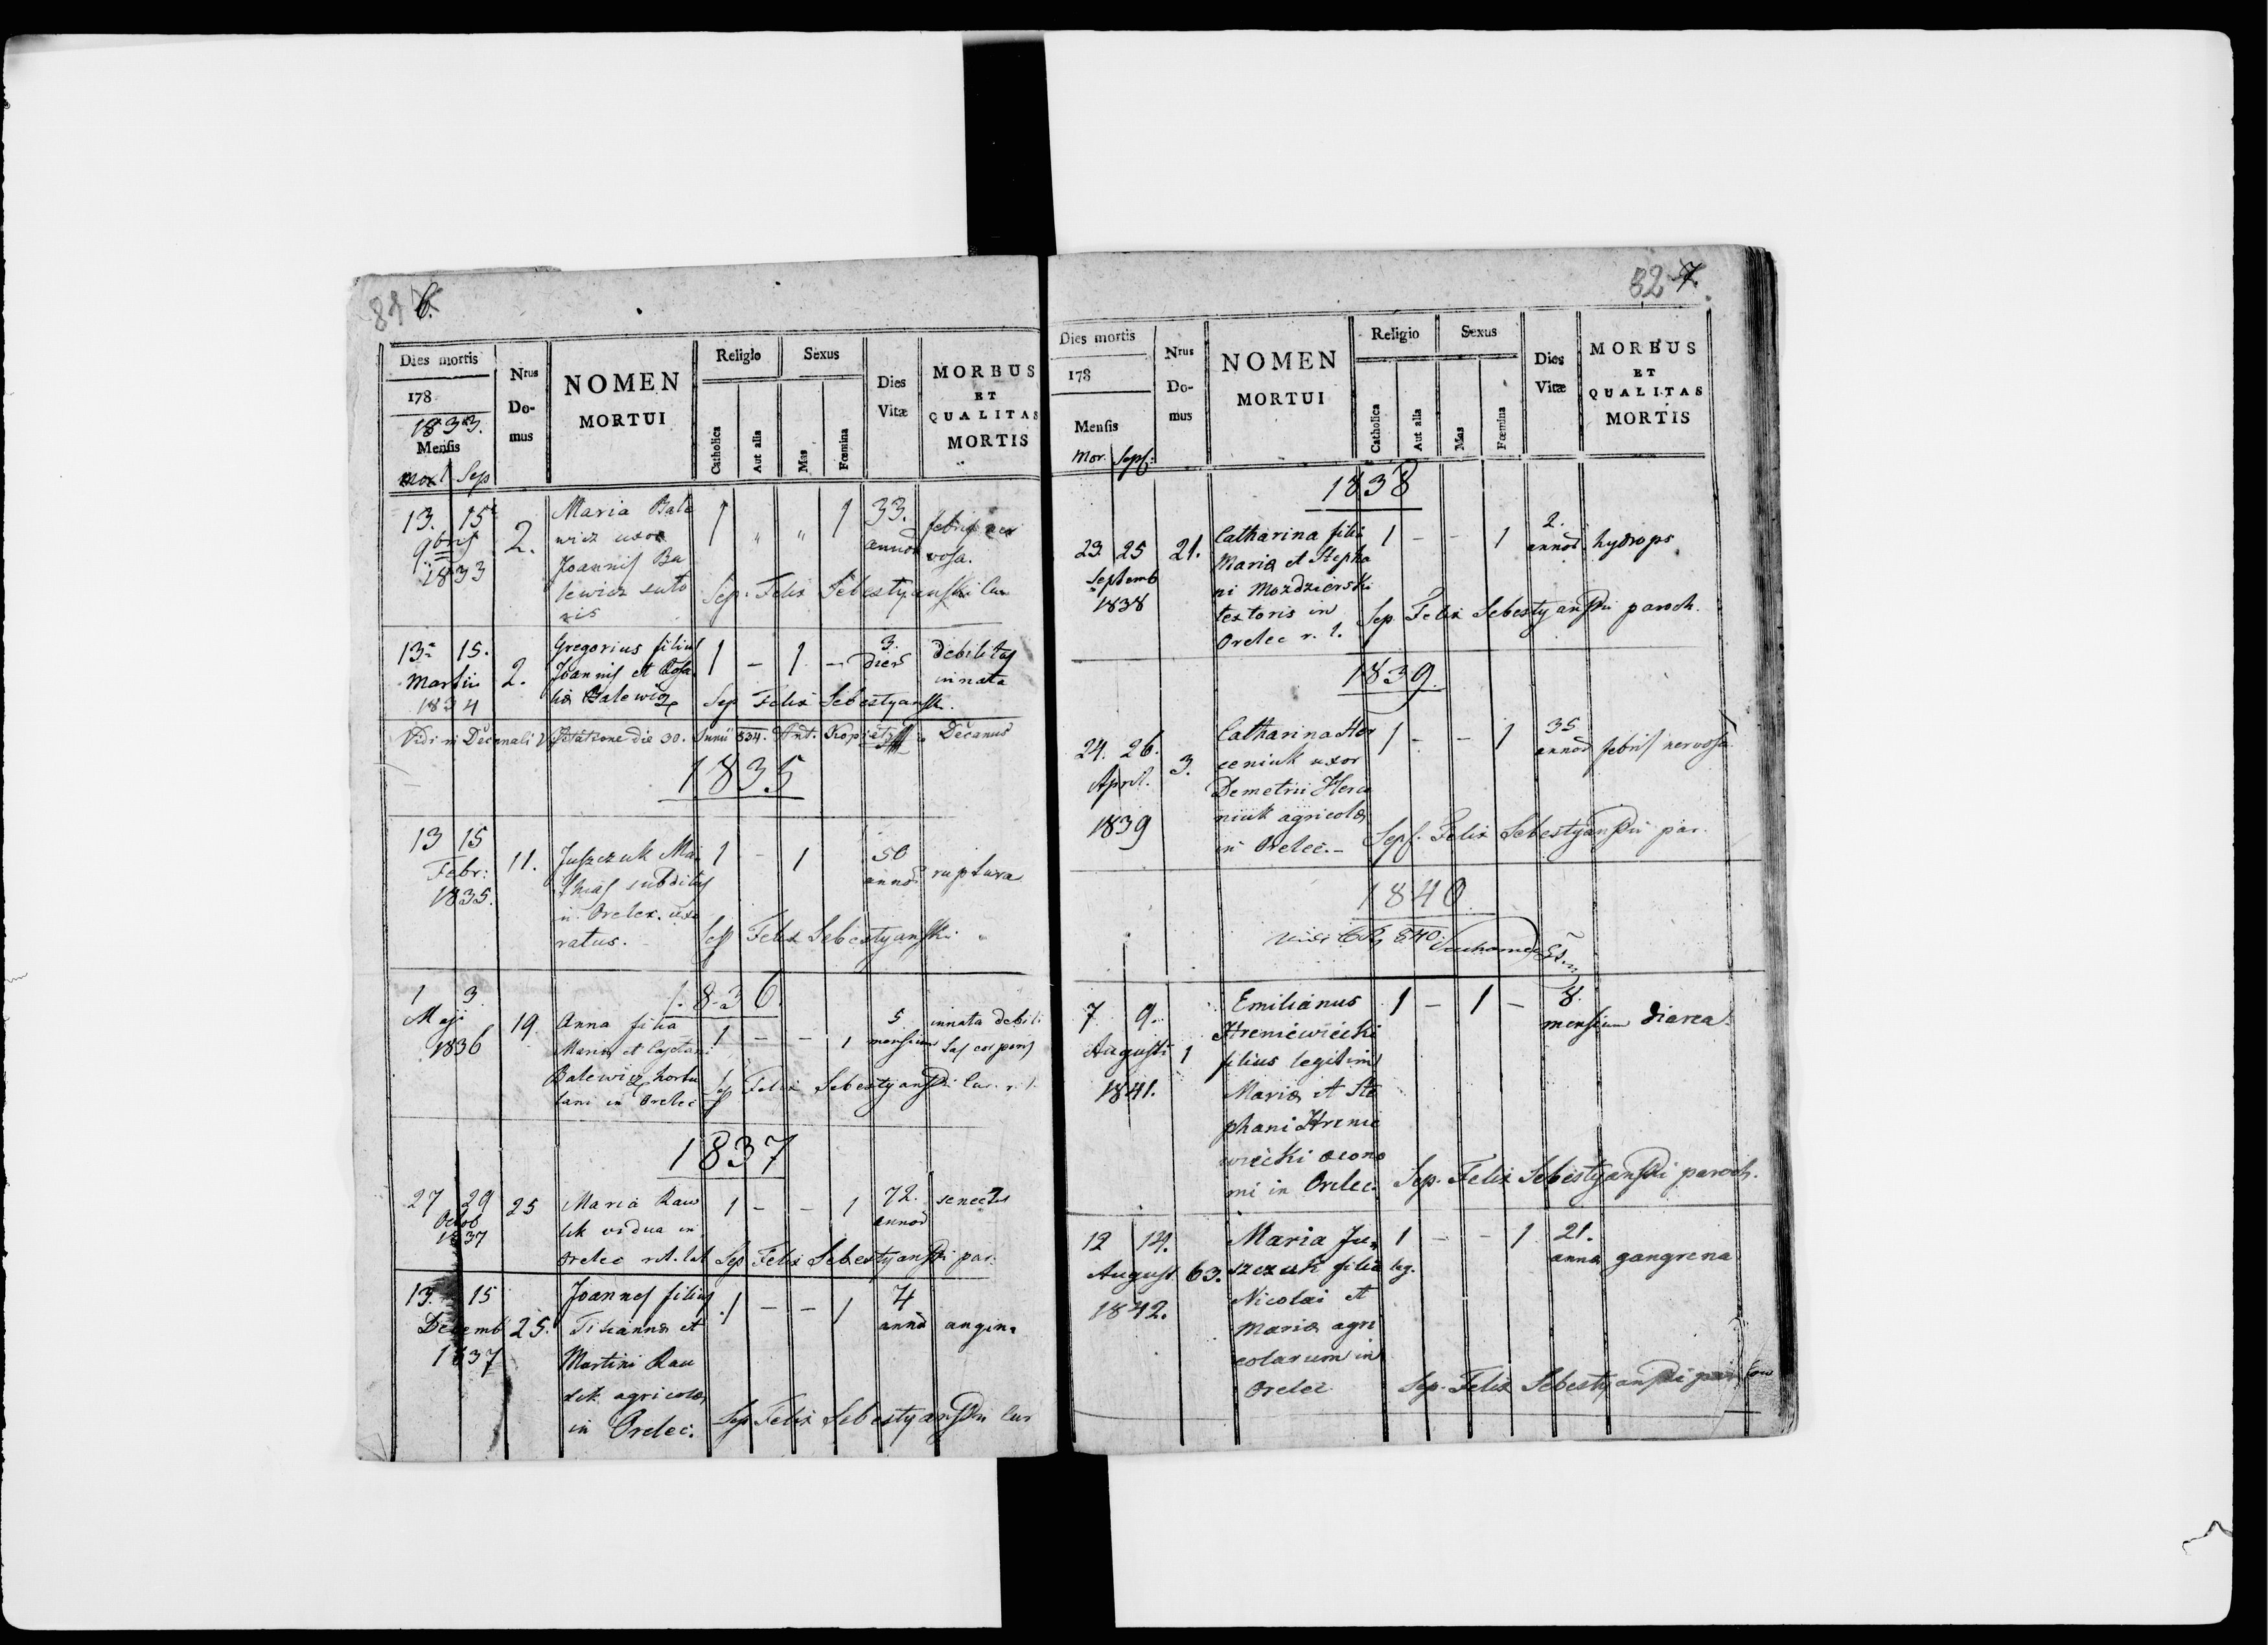 81 6.
Dies mortis
178
1833.
Mensis
Mort Sep
Nrus Domus
NOMEN MORTUI
Religio
Catholica
Aut alia
Sexus
Mas
Fœmina
Dies Vitæ
MORBUS
ET
QUALITAS
MORTIS
13. 15
9bris
1833
2.
Maria Bale
wicz uxor
Joannis Ba
lewicz suto
ris
1 " " 1
33.
annor
febris ner
vosa.
Sep. Felix Sebestyanski Cur
13. 15.
Martii
1834
2.
Gregorius filius
Joannis et Rosa
liæ Balewicz
1 – 1 –
3.
dier
debilitas
innata
Sep Felix Sebestyanski.
Vidi in Decanali Visitatione die 30. Junii 834. Ant. Decanus
1835
13 15
Febr:
1835.
11.
Juszczuk Ma
thias subditus
in Orelec. uxo
ratus.
1 – 1
50
annor
ruptura
Sep Felix Sebestyanski
1836.
1 3
Maji
1836
19.
Anna filia
Mariæ et Cajetani
Balewicz hortu
lani in Orelec
1 – – 1
5.
mensium
innata debili
tas corporis
Sep Felix Sebestyanski Cur. r. l.
1837
27 29
Octob
1837
25
Maria Raw
lik vidua in
Orelec rit. lat
1 – – 1
72.
annor
senectus
Sep Felix Sebestyanski par.
13. 15
Decemb
1837
25.
Joannes filius
Titiannæ et
Martini Raw
lik agricolæ
in Orelec.
1 – – 1
4
anno
angina
Sep Felix Sebestyanski Cur
82 7.
Dies mortis
178
Mensis
Mor. Sep:
Nrus Domus
NOMEN
MORTUI
Religio
Catholica
Aut alia
Sexus
Mas
Fœmina
Dies
Vitæ
MORBUS
ET
QUALITAS
MORTIS
1838
23 25
Septemb
1838
21.
Catharina filia
Mariæ et Stepha
ni Mozdzierski
textoris in
Orelec r. l.
1 – – 1
2.
annor
hydrops
Sep Felix Sebestyanski paroch.
1839.
24. 26.
April.
1839
3.
Catharina Her
ceniuk uxor
Demetrii Herce
niuk agricolæ
in Orelec.–
1 – – 1
35
annor
febris nervosa
Sep. Felix Sebestyanski par.
1840
840.
7 9.
Augusti
1841.
1
Emilianus
Hreniewiecki
filius legitim
Mariæ et Ste
phani Hrenie
wiecki œcono
mi in Orelec.
1 – 1 –
8.
mensium
diarea.
Sep. Felix Sebestyanski paroch.
12 14.
August
1842.
63.
Maria Ju
szczuk filia leg.
Nicolai et
Mariæ agri
colarum in
Orelec
1 – – 1
21.
anno
gangrena
Sep. Felix Sebestyanski